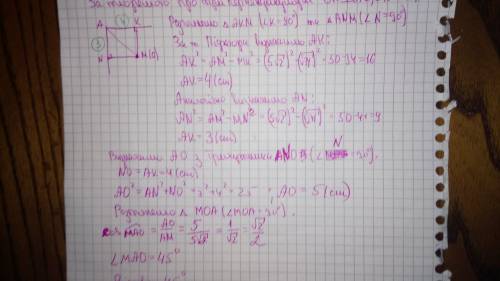 За теоремою про три перпендикуляри
A 4 K
3
N M(O)
Розглянемо △AKM (∠K=90°) та △ANM (∠N=90°)
За т. Піфагора визначимо AK:
AK² = AM² - MK² = (5√2)² - (√34)² = 50-34=16
AK=4(cm)
Аналогічно визначимо AN:
AN² = AM² - MN² = (5√2)² - (√41)² = 50-41=9
AK = 3(cm)
Визначимо AO з трикутника ANO (∠N=90°).
NO=AK=4(cm)
AO² = AN²+NO² = 3²+4² = 25 ; AO = 5(cm)
Розглянемо △ MOA (∠MOA = 90°).
cos MAO = AO/AM = 5/5√2 = 1/√2 = √2/2
∠MAO = 45°